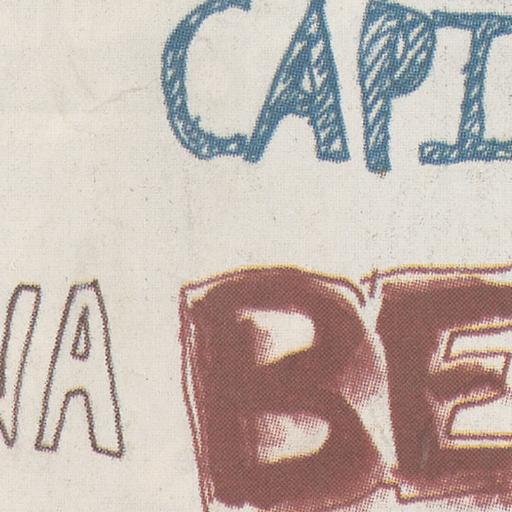 CAPI
NA BE